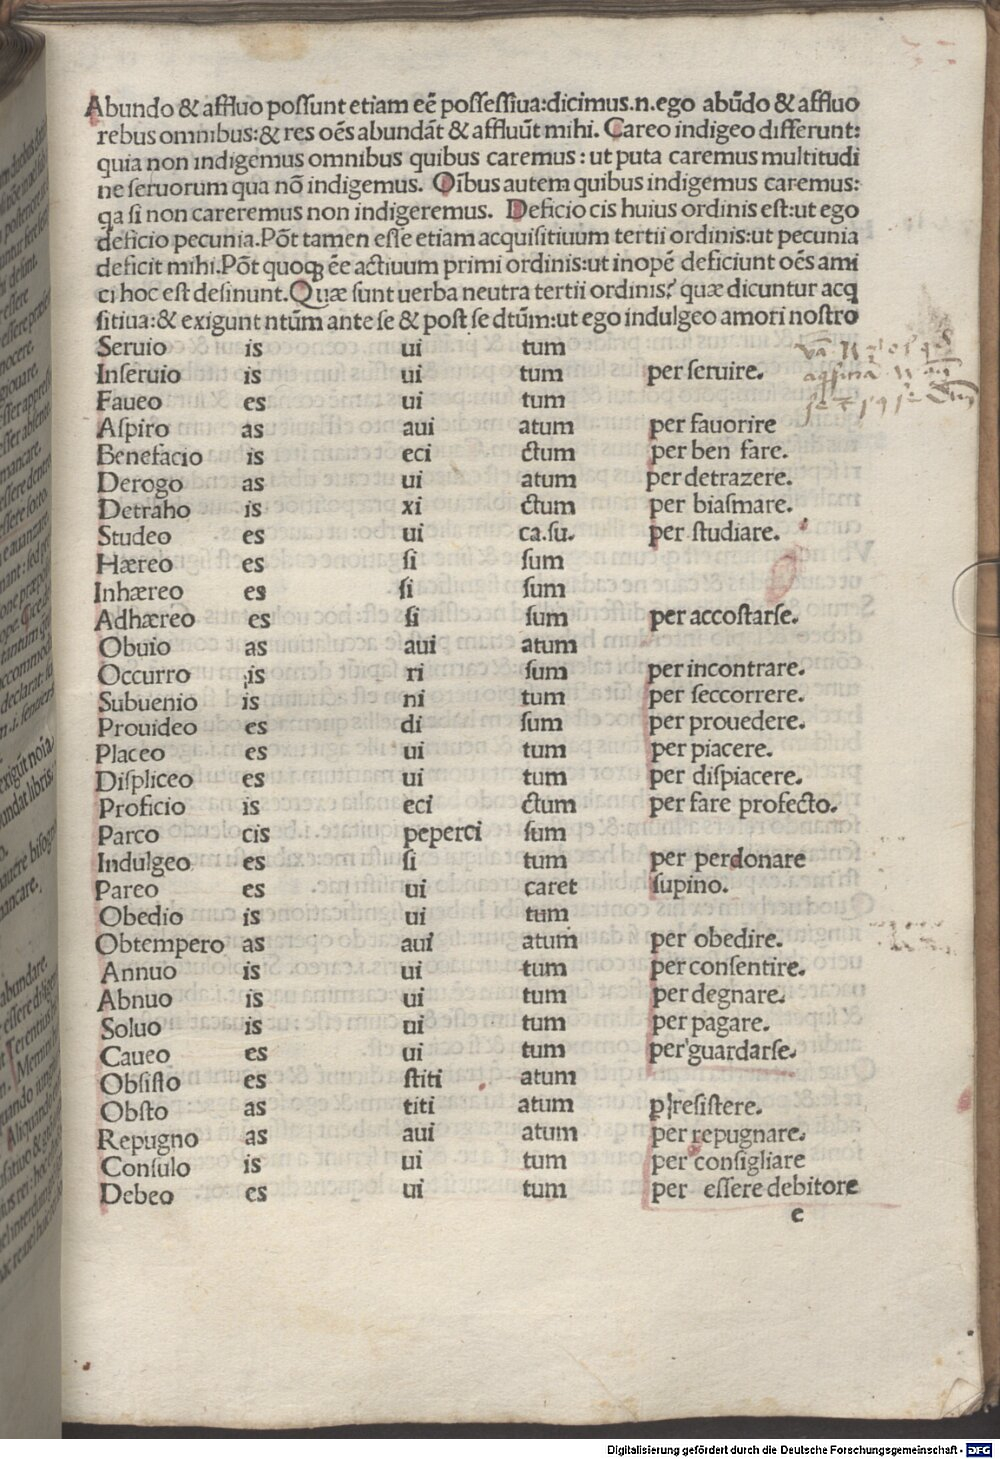 Abundo & affluo poſſunt etiam eē poſſeſſiua:dicimus.n.ego abūdo & affluo
rebus omnibus:& res oēs abundāt & affluūt mihi. Careo indigeo differunt:
quia non indigemus omnibus quibus caremus : ut puta caremus multitudi
ne ſeruorum qua nō indigemus. Oībus autem quibus indigemus caremus:
qa ſi non careremus non indigeremus. Deficio cis huius ordinis eſt:ut ego
deficio pecunia.Pōt tamen eſſe etiam acquiſitiuum tertii ordinis:ut pecunia
deficit mihi.Pōt quoqꝫ ēe actiuum primi ordinis:ut inopē deficiunt oēs ami
ci hoc eſt deſinunt.Quæ ſunt uerba neutra tertii ordinis? quæ dicuntur acq
ſitiua:& exigunt ntūm ante ſe & poſt ſe dtūm:ut ego indulgeo amori noſtro
Seruio is ui tum
Inſeruio is ui tum per ſeruire.
Faueo es ui tum
Aſpiro as aui atum per fauorire
Benefacio is eci ctum per ben fare.
Derogo as ui atum per detrazere.
Detraho is xi ctum per biaſmare.
Studeo es ui ca.ſu. per ſtudiare.
Hæreo es ſi ſum
Inhæreo es ſi ſum
Adhæreo es ſi ſum per accoſtarſe.
Obuio as aui atum
Occurro is ri ſum per incontrare.
Subuenio is ni tum per ſeccorrere.
Prouideo es di ſum per prouedere.
Placeo es ui tum per piacere.
Diſpliceo es ui tum per diſpiacere.
Proficio is eci ctum per fare profecto.
Parco cis peperci ſum
Indulgeo es ſi tum per perdonare
Pareo es ui caret ſupino.
Obedio is ui tum
Obtempero as aui atum per obedire.
Annuo is ui tum per conſentire.
Abnuo is ui tum per degnare.
Soluo is ui tum per pagare.
Caueo es ui tum per guardarſe.
Obſiſto es ſtiti atum
Obſto as titi atum p reſiſtere.
Repugno as aui atum per repugnare.
Conſulo is ui tum per conſigliare
Debeo es ui tum per eſſere debitore
e
Digitalisierung gefördert durch die Deutsche Forschungsgemeinschaft - DFG